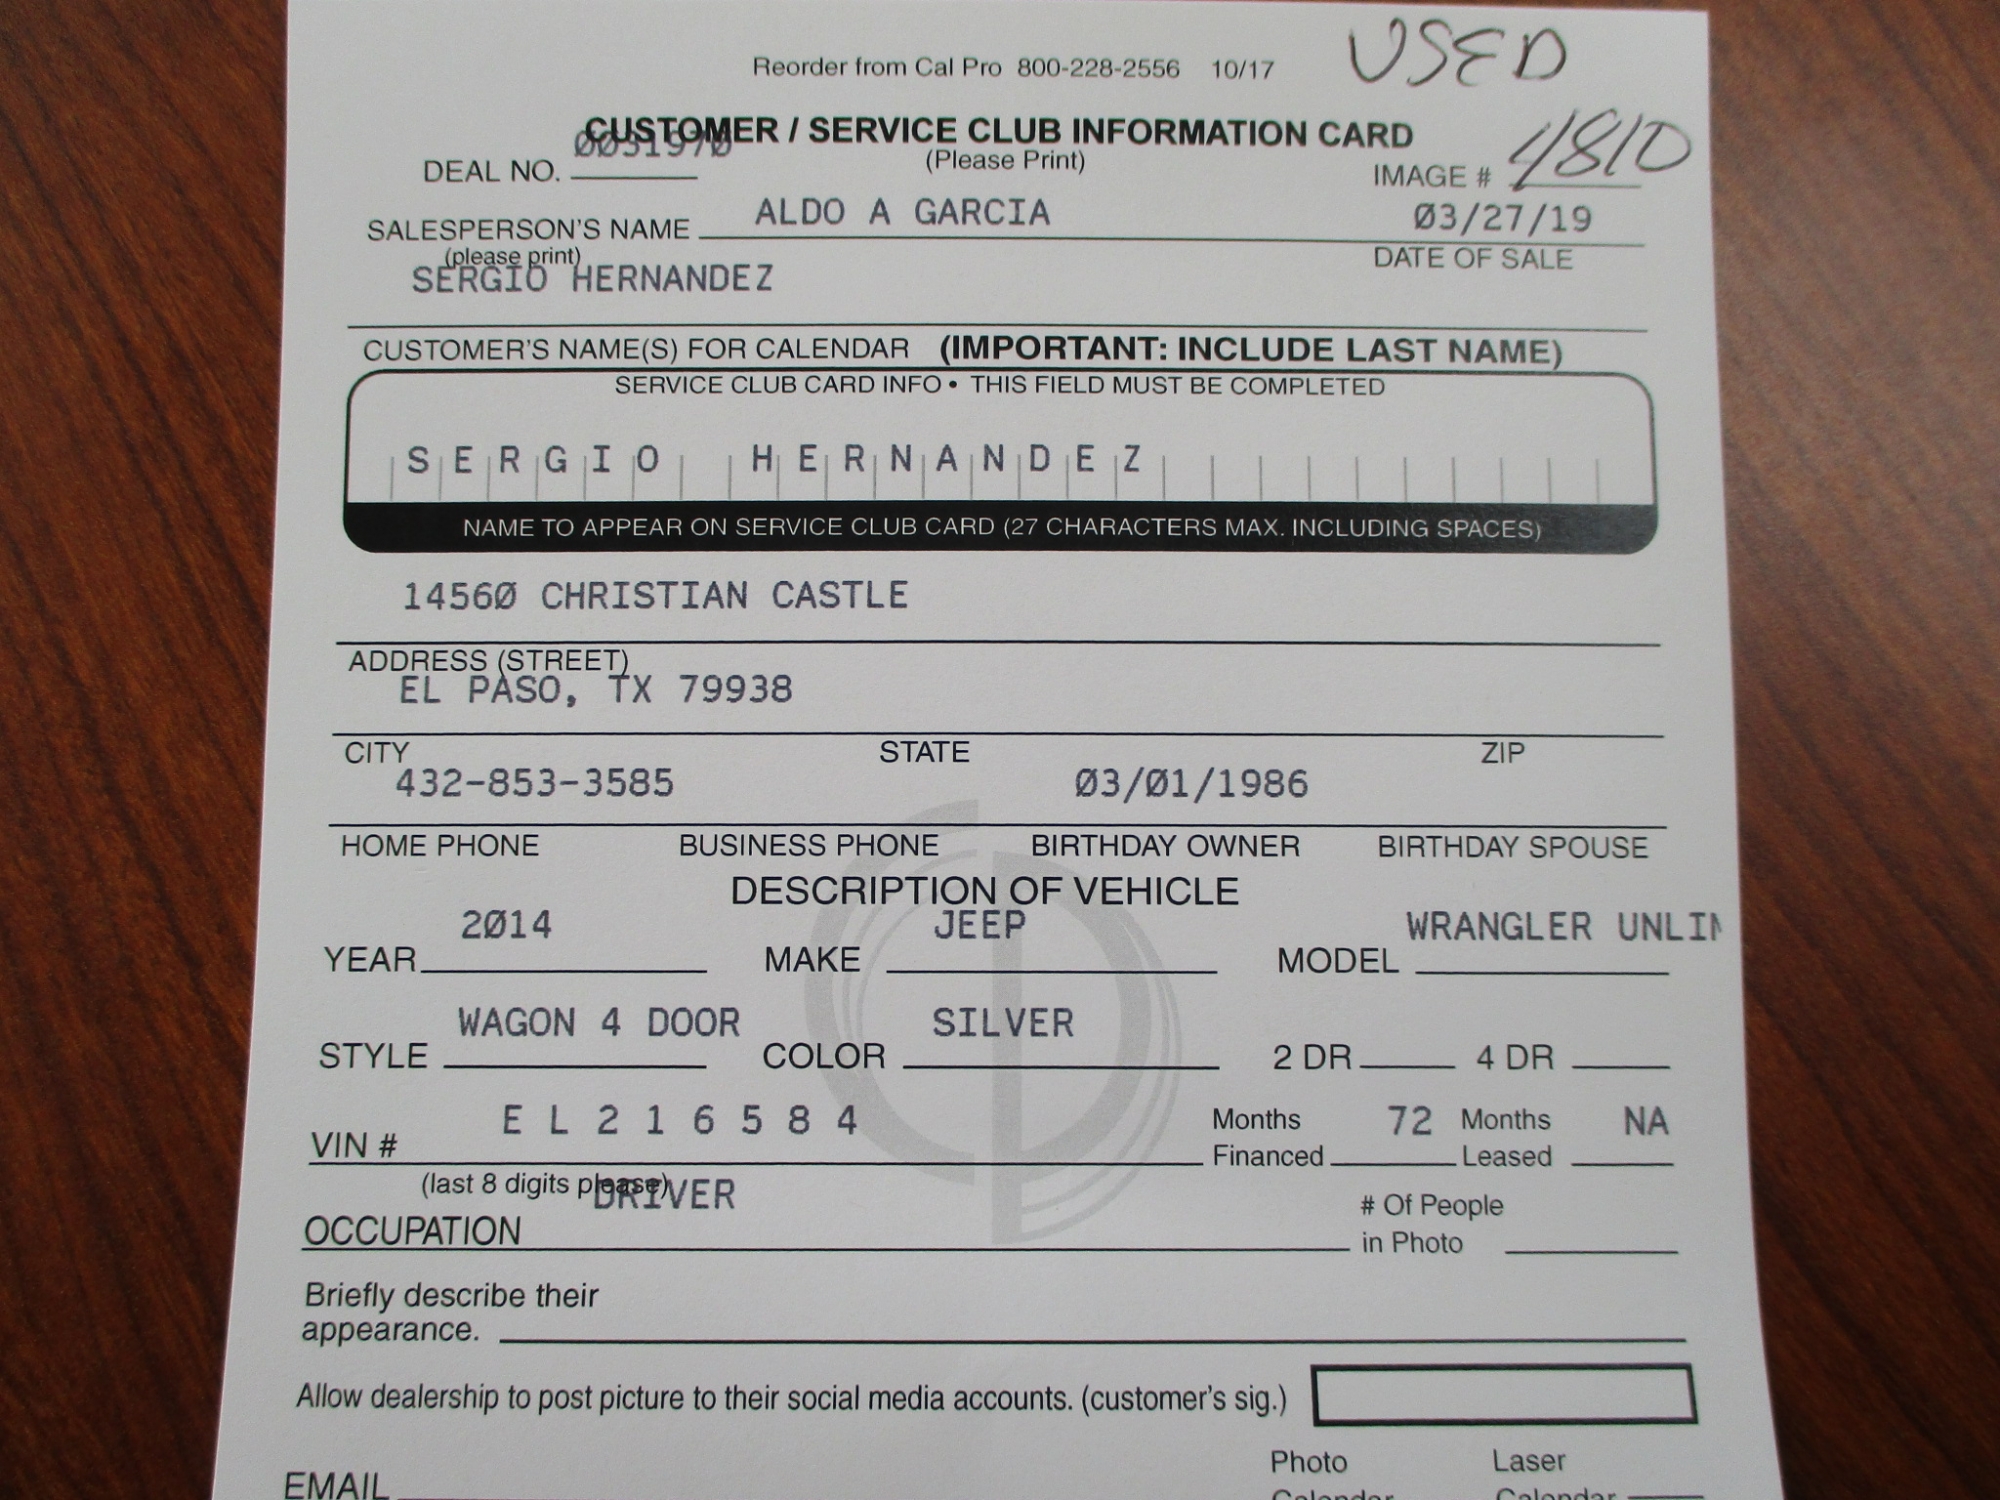 Reorder from Cal Pro 800-228-2556 10/17 USED
CUSTOMER / SERVICE CLUB INFORMATION CARD
(Please Print)
DEAL NO. 0031970
IMAGE # 4810
SALESPERSON'S NAME ALDO A GARCIA 03/27/19
(please print) DATE OF SALE
SERGIO HERNANDEZ
CUSTOMER'S NAME(S) FOR CALENDAR (IMPORTANT: INCLUDE LAST NAME)
SERVICE CLUB CARD INFO • THIS FIELD MUST BE COMPLETED
SERGIO HERNANDEZ
NAME TO APPEAR ON SERVICE CLUB CARD (27 CHARACTERS MAX. INCLUDING SPACES)
14560 CHRISTIAN CASTLE
ADDRESS (STREET)
EL PASO, TX 79938
CITY STATE ZIP
432-853-3585 03/01/1986
HOME PHONE BUSINESS PHONE BIRTHDAY OWNER BIRTHDAY SPOUSE
DESCRIPTION OF VEHICLE
2014 JEEP WRANGLER UNLIM
YEAR MAKE MODEL
WAGON 4 DOOR SILVER
STYLE COLOR 2 DR 4 DR
VIN # E L 2 1 6 5 8 4 Months Financed 72 Months Leased NA
(last 8 digits please)
DRIVER
OCCUPATION # Of People in Photo
Briefly describe their
appearance.
Allow dealership to post picture to their social media accounts. (customer's sig.)
Photo Laser
EMAIL Calendar Calendar